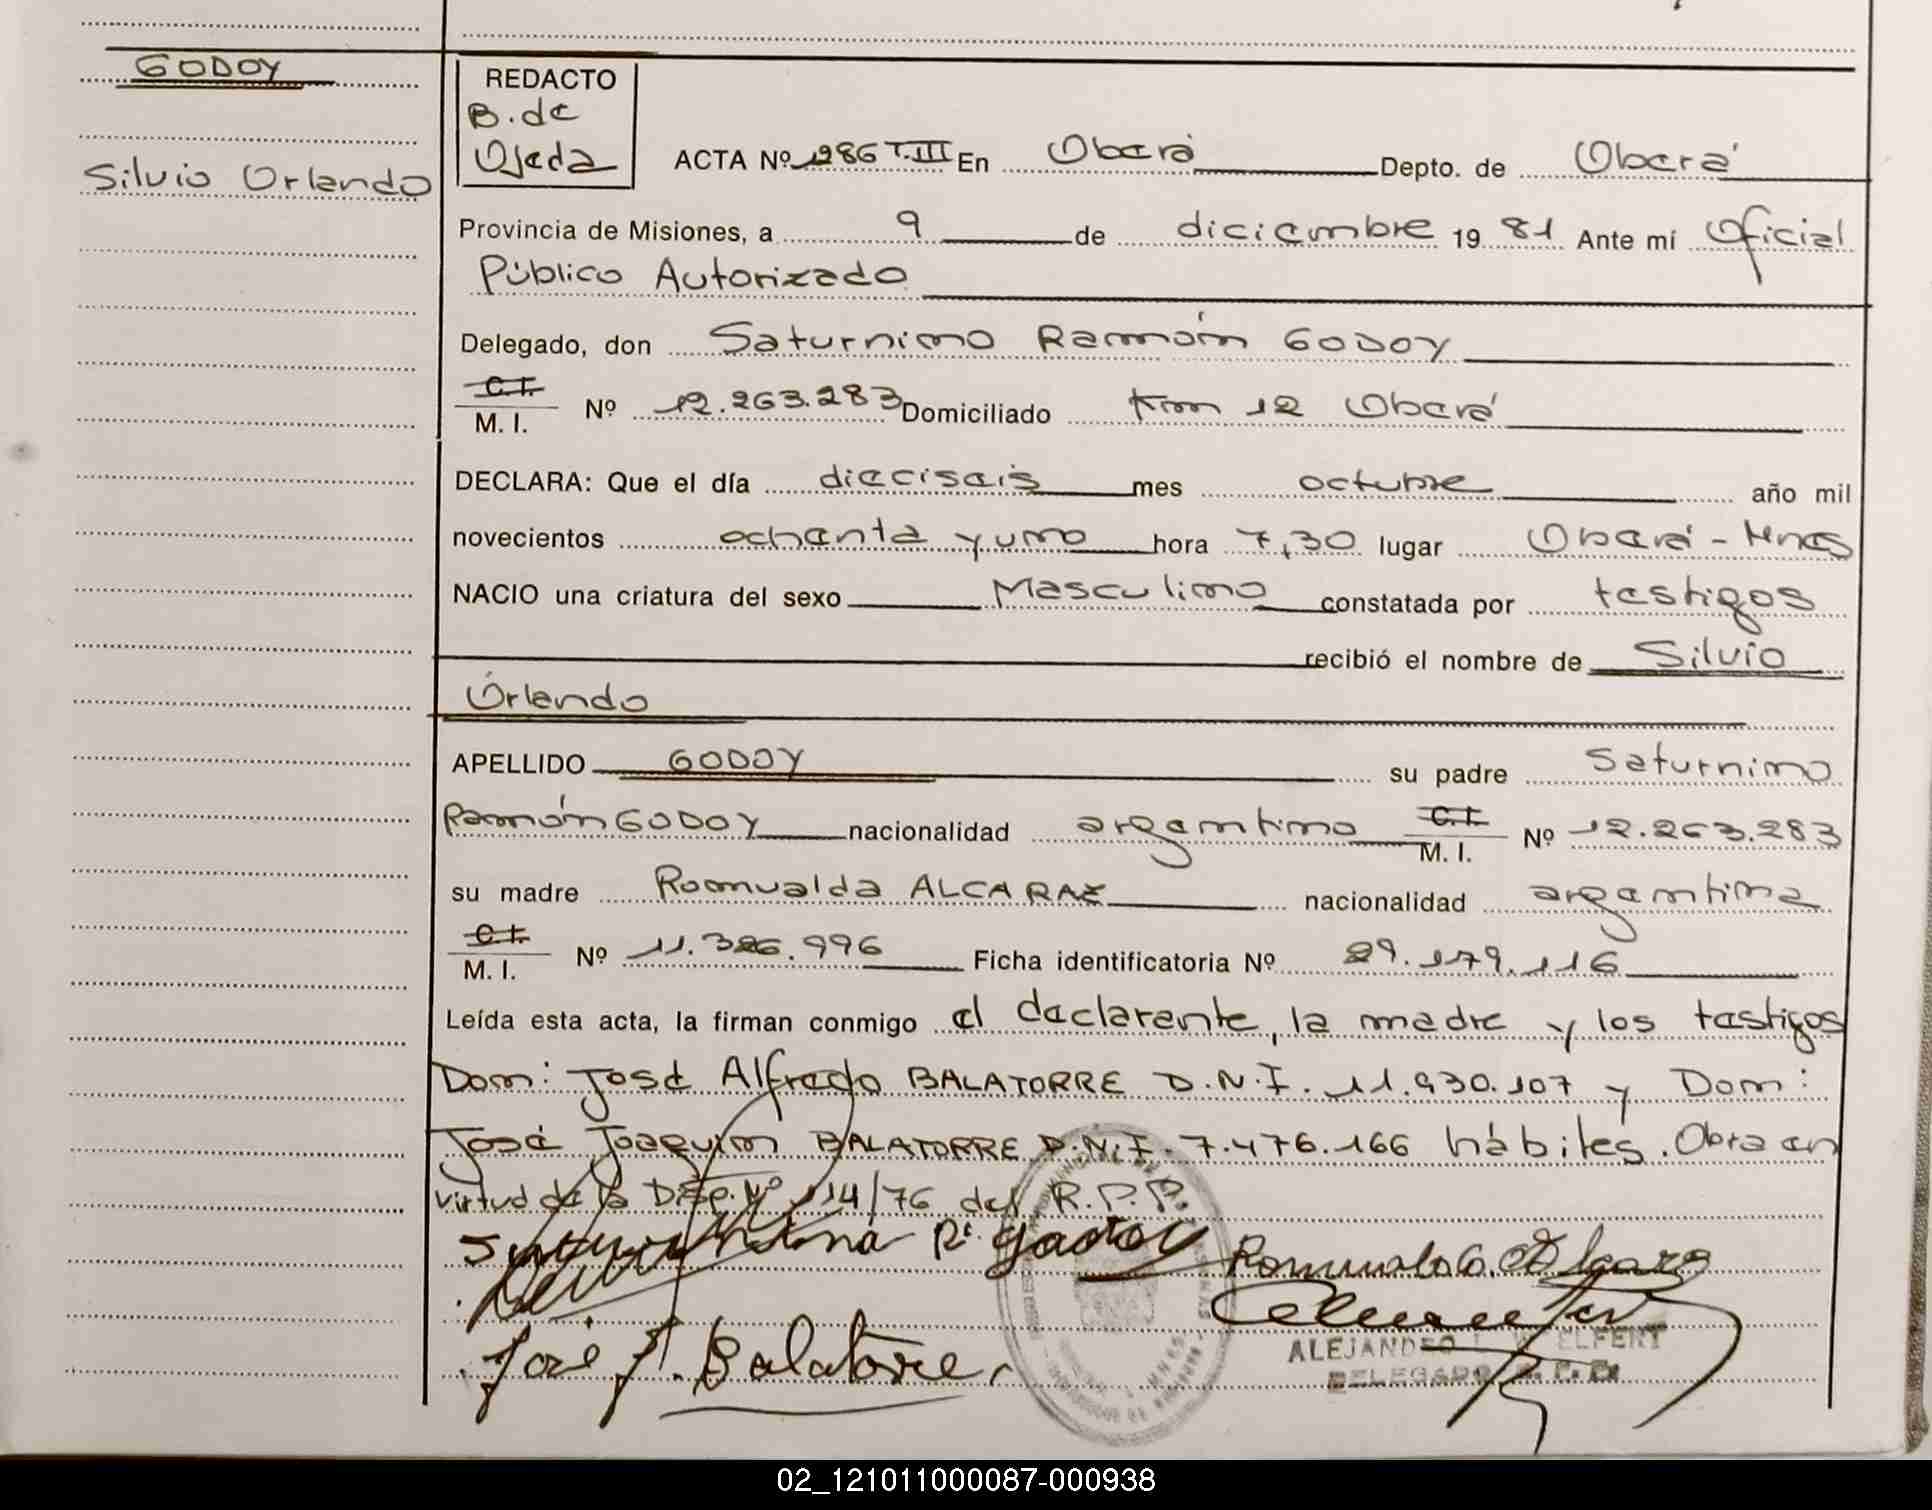 GODOY
Silvio Orlando
REDACTO
B. de
Ojeda
ACTA Nº 1286 T.III En Oberá Depto. de Oberá
Provincia de Misiones, a 9 de diciembre 19 81 Ante mí Oficial
Público Autorizado
Delegado, don Saturnino Ramón GODOY
C.I.
M. I. Nº 12.263.283 Domiciliado Km 12 Oberá
DECLARA: Que el día dieciseis mes octubre año mil
novecientos ochenta y uno hora 7,30 lugar Oberá - Mnes
NACIO una criatura del sexo Masculino constatada por testigos
recibió el nombre de Silvio
Orlando
APELLIDO GODOY su padre Saturnino
Ramón GODOY nacionalidad argentino C.I.
M. I. Nº 12.263.283
su madre Romualda ALCARAZ nacionalidad argentina
C.I.
M. I. Nº 11.326.996 Ficha identificatoria Nº 29.179.116
Leída esta acta, la firman conmigo el declarante, la madre y los testigos
Don: José Alfredo BALATORRE D.N.I. 11.930.107 y Don:
José Joaquín BALATORRE D.N.I. 7.476.166 hábiles. Obra en
virtud de la Disp. Nº 114/76 del R.P.P.
José J. Balatorre
DELEGADO
02_121011000087-000938